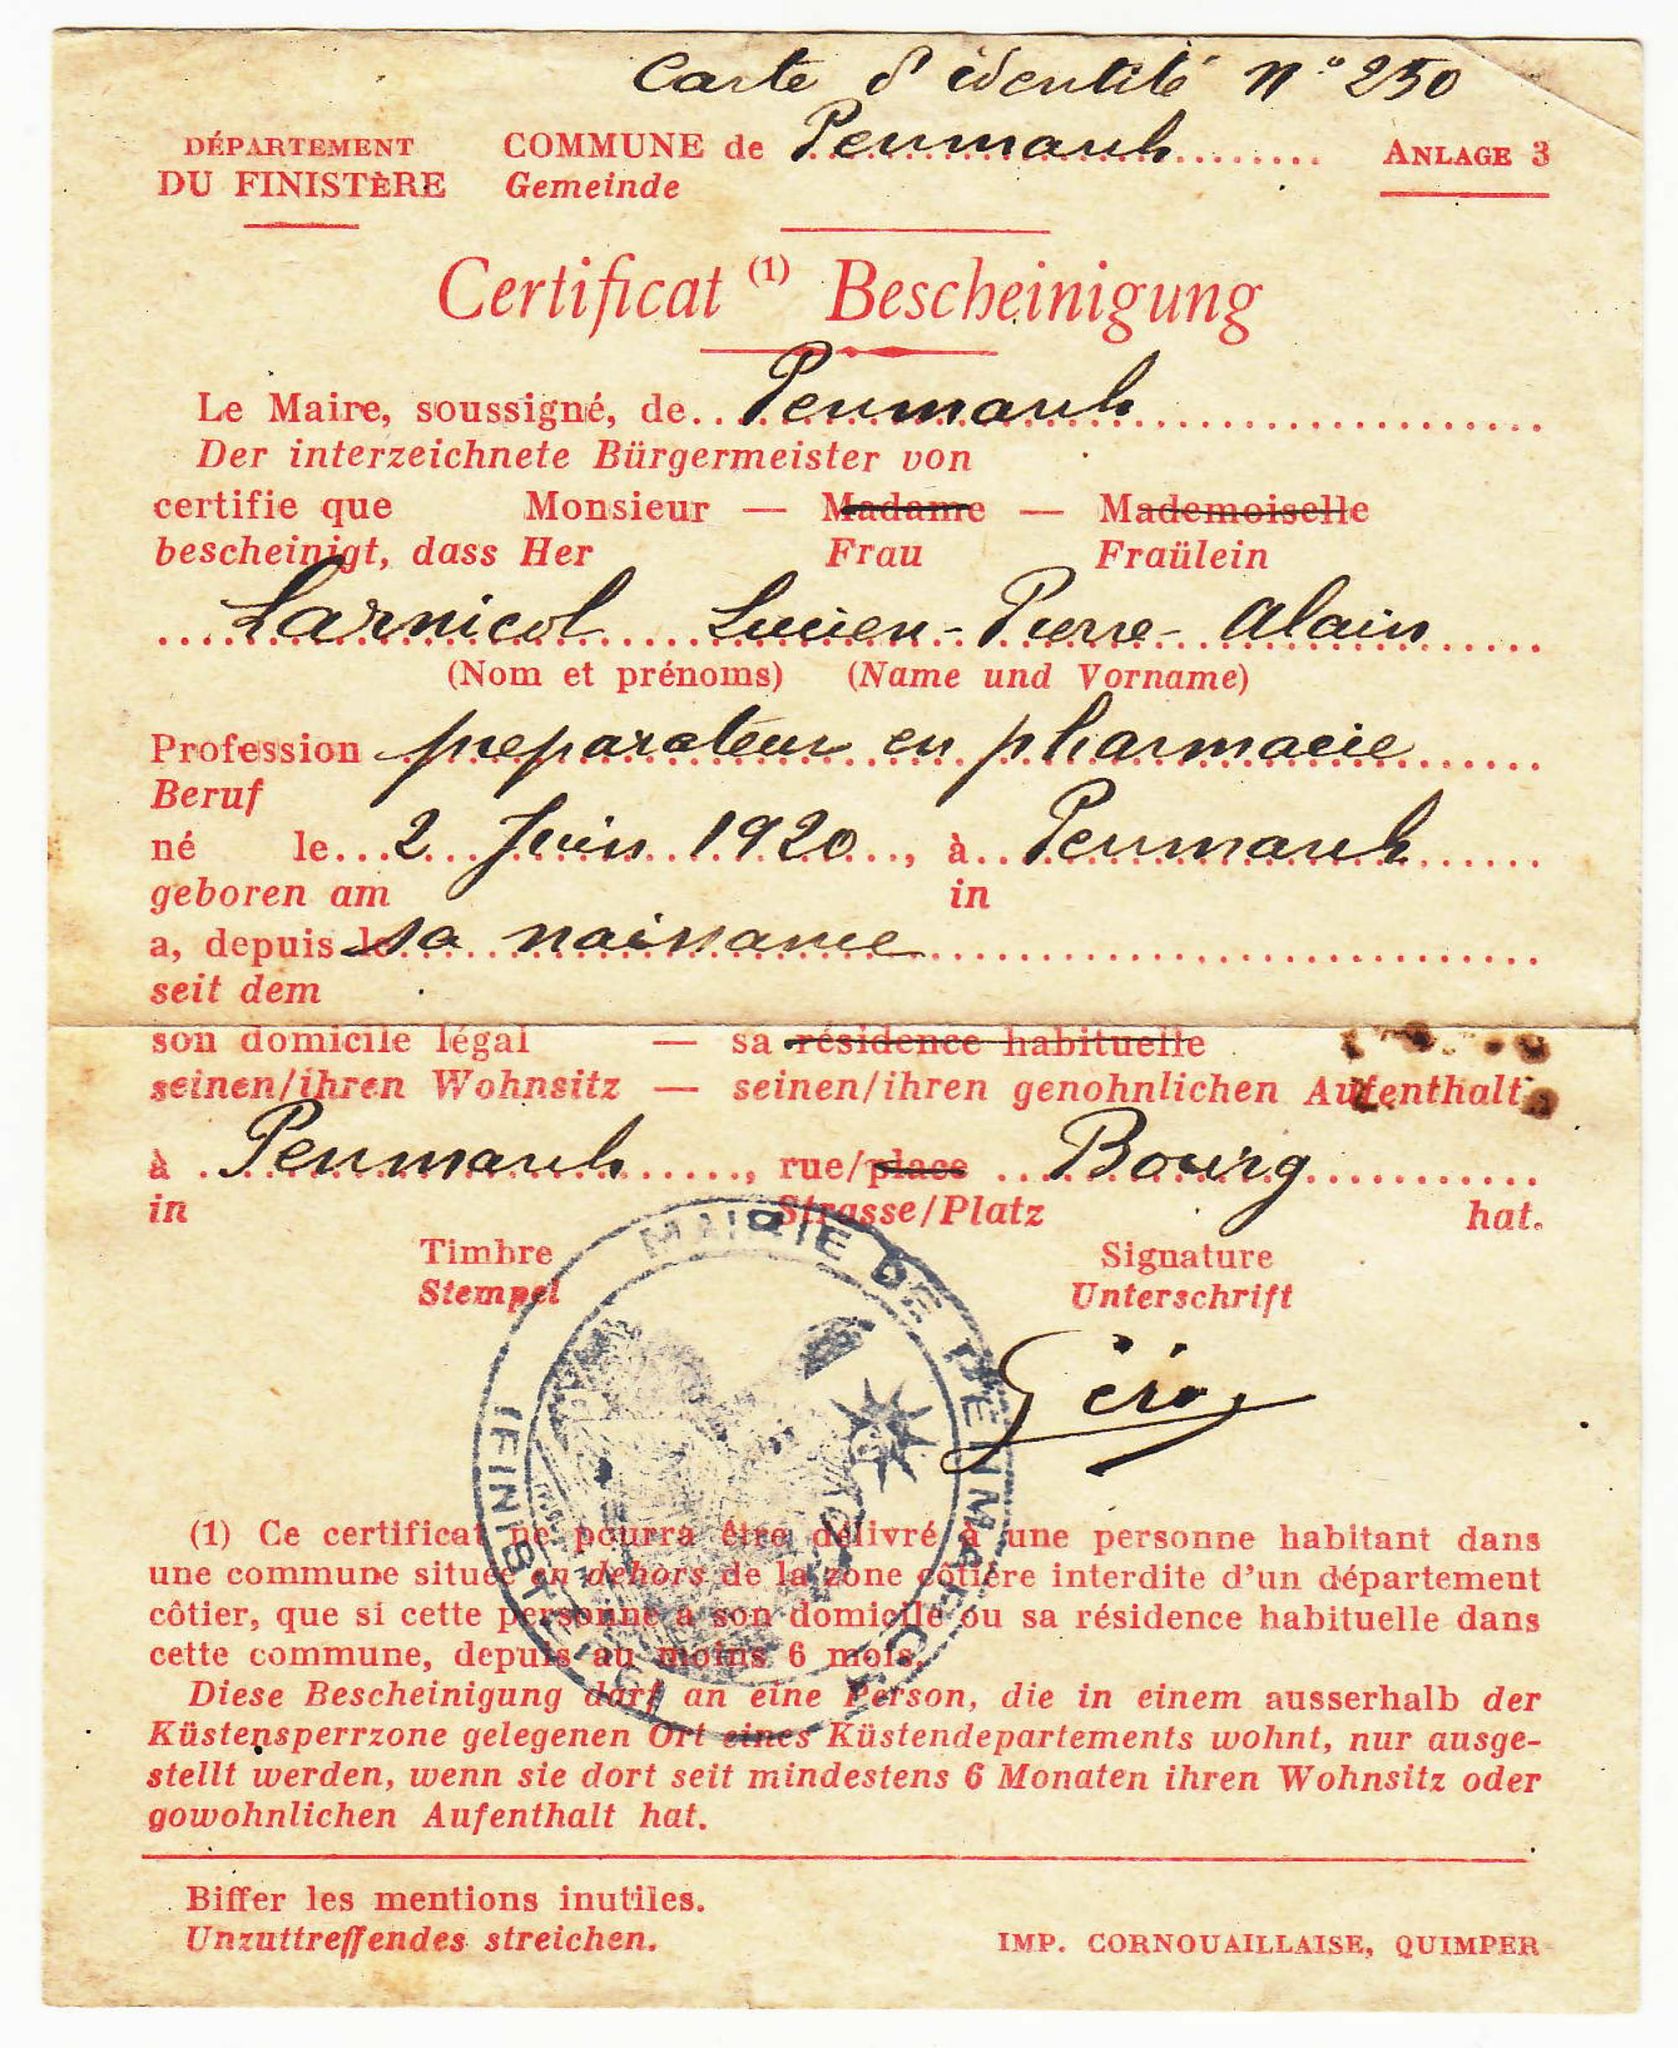 Carte d'identité N° 250
DÉPARTEMENT COMMUNE de Penmarch ANLAGE 3
DU FINISTÈRE Gemeinde
Certificat (1) Bescheinigung
Le Maire, soussigné, de Penmarch
Der interzeichnete Bürgermeister von
certifie que Monsieur — Madame — Mademoiselle
bescheinigt, dass Her Frau Fraülein
Larnicol Lucien-Pierre-Alain
(Nom et prénoms) (Name und Vorname)
Profession preparateur en pharmacie
Beruf
né le 2 Juin 1920, à Penmarch
geboren am in
a, depuis le sa naissance
seit dem
son domicile légal — sa résidence habituelle
seinen/ihren Wohnsitz — seinen/ihren genohnlichen Aufenthalt
à Penmarch, rue/place Bourg
in Strasse/Platz hat.
Timbre Signature
Stempel Unterschrift
MAIRIE DE PENMARCH
(FINISTÈRE)
(1) Ce certificat ne pourra être délivré à une personne habitant dans
une commune située en dehors de la zone côtière interdite d'un département
côtier, que si cette personne a son domicile ou sa résidence habituelle dans
cette commune, depuis au moins 6 mois.
Diese Bescheinigung darf an eine Person, die in einem ausserhalb der
Küstensperrzone gelegenen Ort eines Küstendepartements wohnt, nur ausge-
stellt werden, wenn sie dort seit mindestens 6 Monaten ihren Wohnsitz oder
gowohnlichen Aufenthalt hat.
Biffer les mentions inutiles.
Unzuttreffendes streichen. IMP. CORNOUAILLAISE, QUIMPER